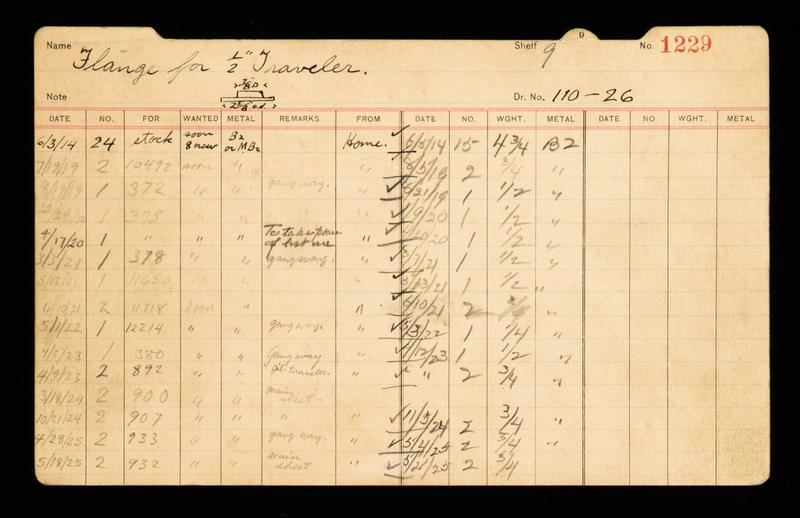 Name Flange for 1/2" Traveler. Shelf 9 9 No. 1229
Note 7/8 D 2 5/8 o.d Dr. No. 110-26
DATE NO. FOR WANTED METAL REMARKS FROM DATE NO. WGHT. METAL DATE NO. WGHT. METAL
6/3/14 24 stock soon 8 now Bz or MBz Home. ✓ 6/5/14 15 4 3/4 B2
7/19/19 2 10492 soon " " 2 3/4 "
372 " " gangway. " ✓ 6/21/19 1 1/2 "
1 375 " " " " ✓ 1/9/20 1 1/2 "
4/17/20 1 " " " To take place of last one " ✓ 4/20/20 1 1/2 "
3/3/21 1 378 " " gangway. " ✓ 3/7/21 1 1/2 "
5/12/21 1 11650 " " ✓ 1 1/2 "
6/10/21 2 11718 soon " " ✓ 6/10/21 2 "
5/11/22 1 12214 " " gangway. " ✓ 5/3/22 1 1/4 "
4/5/23 1 380 " " Gangway " ✓ 4/12/23 1 1/2 "
4/9/23 2 892 " " traveler. " ✓ " 2 3/4 "
3/18/24 2 900 " " main sheet.
10/21/24 2 907 " " " " ✓ 11/5/24 2 3/4 "
4/28/25 2 933 " " gang way. " ✓ 5/4/25 2 3/4 "
5/18/25 2 932 " " main sheet " ✓ 5/25/25 2 3/4